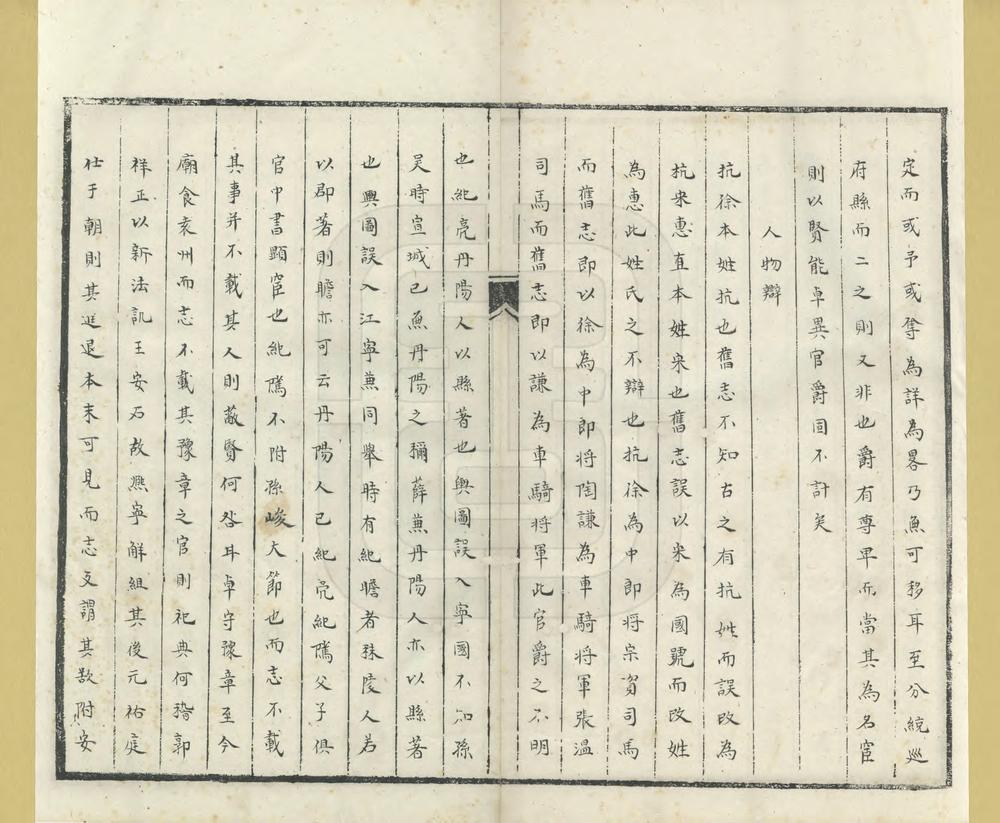 定而或予或奪為詳為畧乃魚可移耳至分統巡
府縣而二之則又非也爵有專卑而當其為名宦
則以賢能卓異官爵固不計矣
人物辯
抗徐本姓抗也舊志不知古之有抗姓而誤改為
抗宋惠直本姓宋也舊志誤以宋為國號而改姓
為惠此姓氏之不辯也抗徐為中郎将宗資司馬
而舊志即以徐為中郎将陶謙為車騎将軍張温
司馬而舊志即以謙為車騎将軍此官爵之不明
也紀亮丹陽人以縣著也輿圖誤入寧國不知孫
吴時宣城已魚丹陽之稱薛兼丹陽人亦以縣著
也興圖誤入江寧蕪同舉時有紀瞻者秣陵人若
以郡著則瞻亦可云丹陽人已紀亮紀隲父子俱
官中書顯宦也紀隲不附孫峻大節也而志不載
其事并不載其人則蔽賢何咎耳卓守豫章至今
廟食袁州而志不載其豫章之官則祀典何稽郭
祥正以新法訊王安石故熈寧解組其後元祐庭
仕于朝則其進退本末可見而志文謂其欵附安